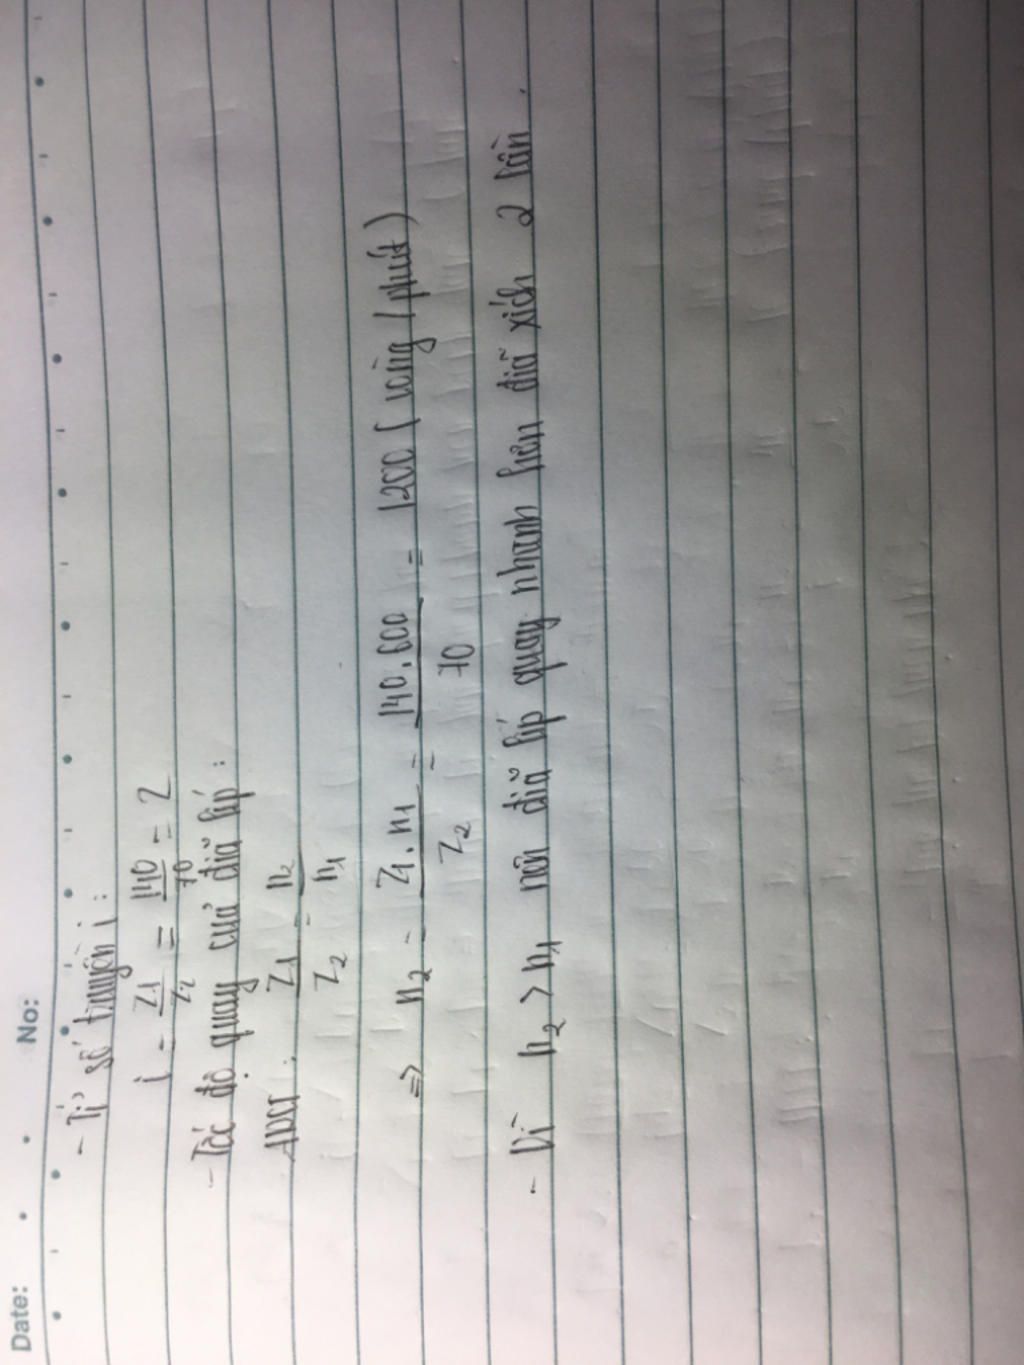 Date: No:
- Tỉ số truyền i:
i = Z1/Z2 = 140/70 = 2
- Tốc độ quay của đĩa líp:
ADCT: Z1/Z2 = n2/n1
=> n2 = Z1.n1/Z2 = 140.600/70 = 1200 (vòng/phút)
- Vì n2 > n1 nên đĩa líp quay nhanh hơn đĩa xích 2 lần.